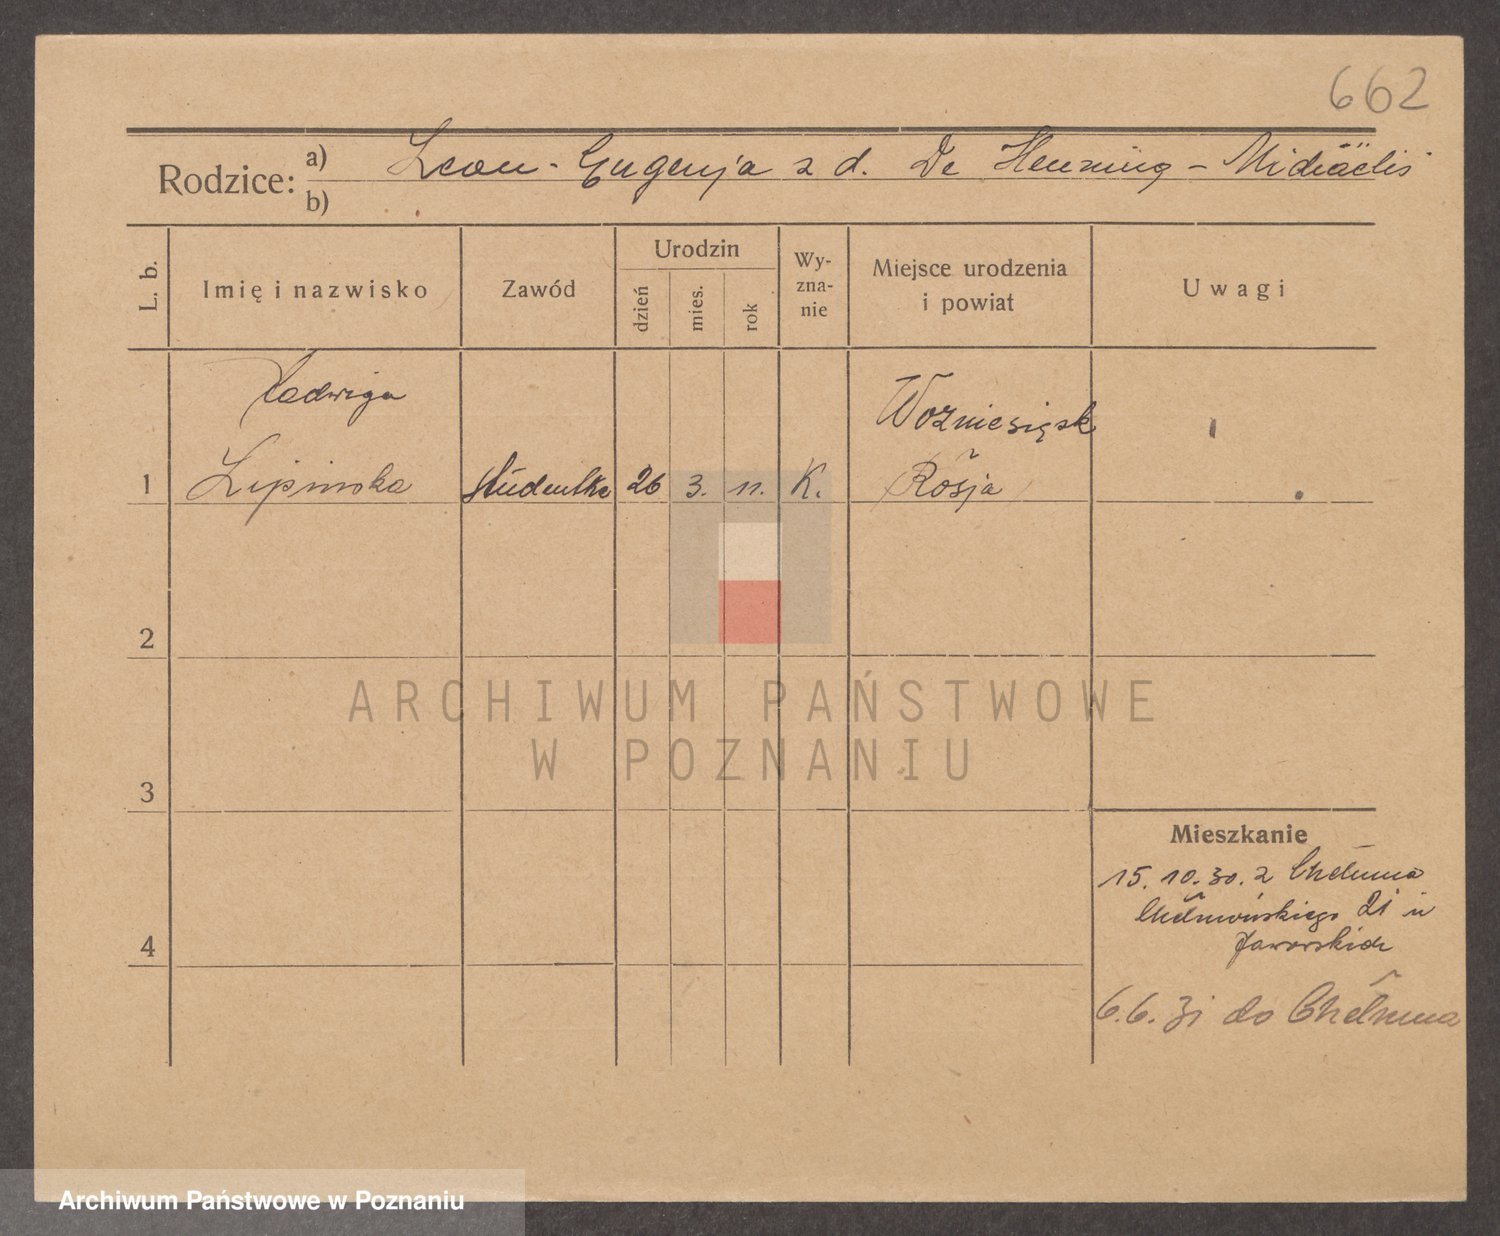 662
Rodzice: a) Leon - Eugenja z d. De Henning - Michaelis
b)
L. b.
Imię i nazwisko
Zawód
Urodzin
dzień
mies.
rok
Wy-
zna-
nie
Miejsce urodzenia
i powiat
Uwagi
Jadwiga
Wozniesięsk
1 Lipinska studentka 26 3. 11. K. Rosja
2
ARCHIWUM PAŃSTWOWE
W POZNANIU
3
Mieszkanie
15. 10. 30. z Chełmna
Chełmońskiego 21 u
Jaworskich
4
6.6. 31 do Chełmna
Archiwum Państwowe w Poznaniu